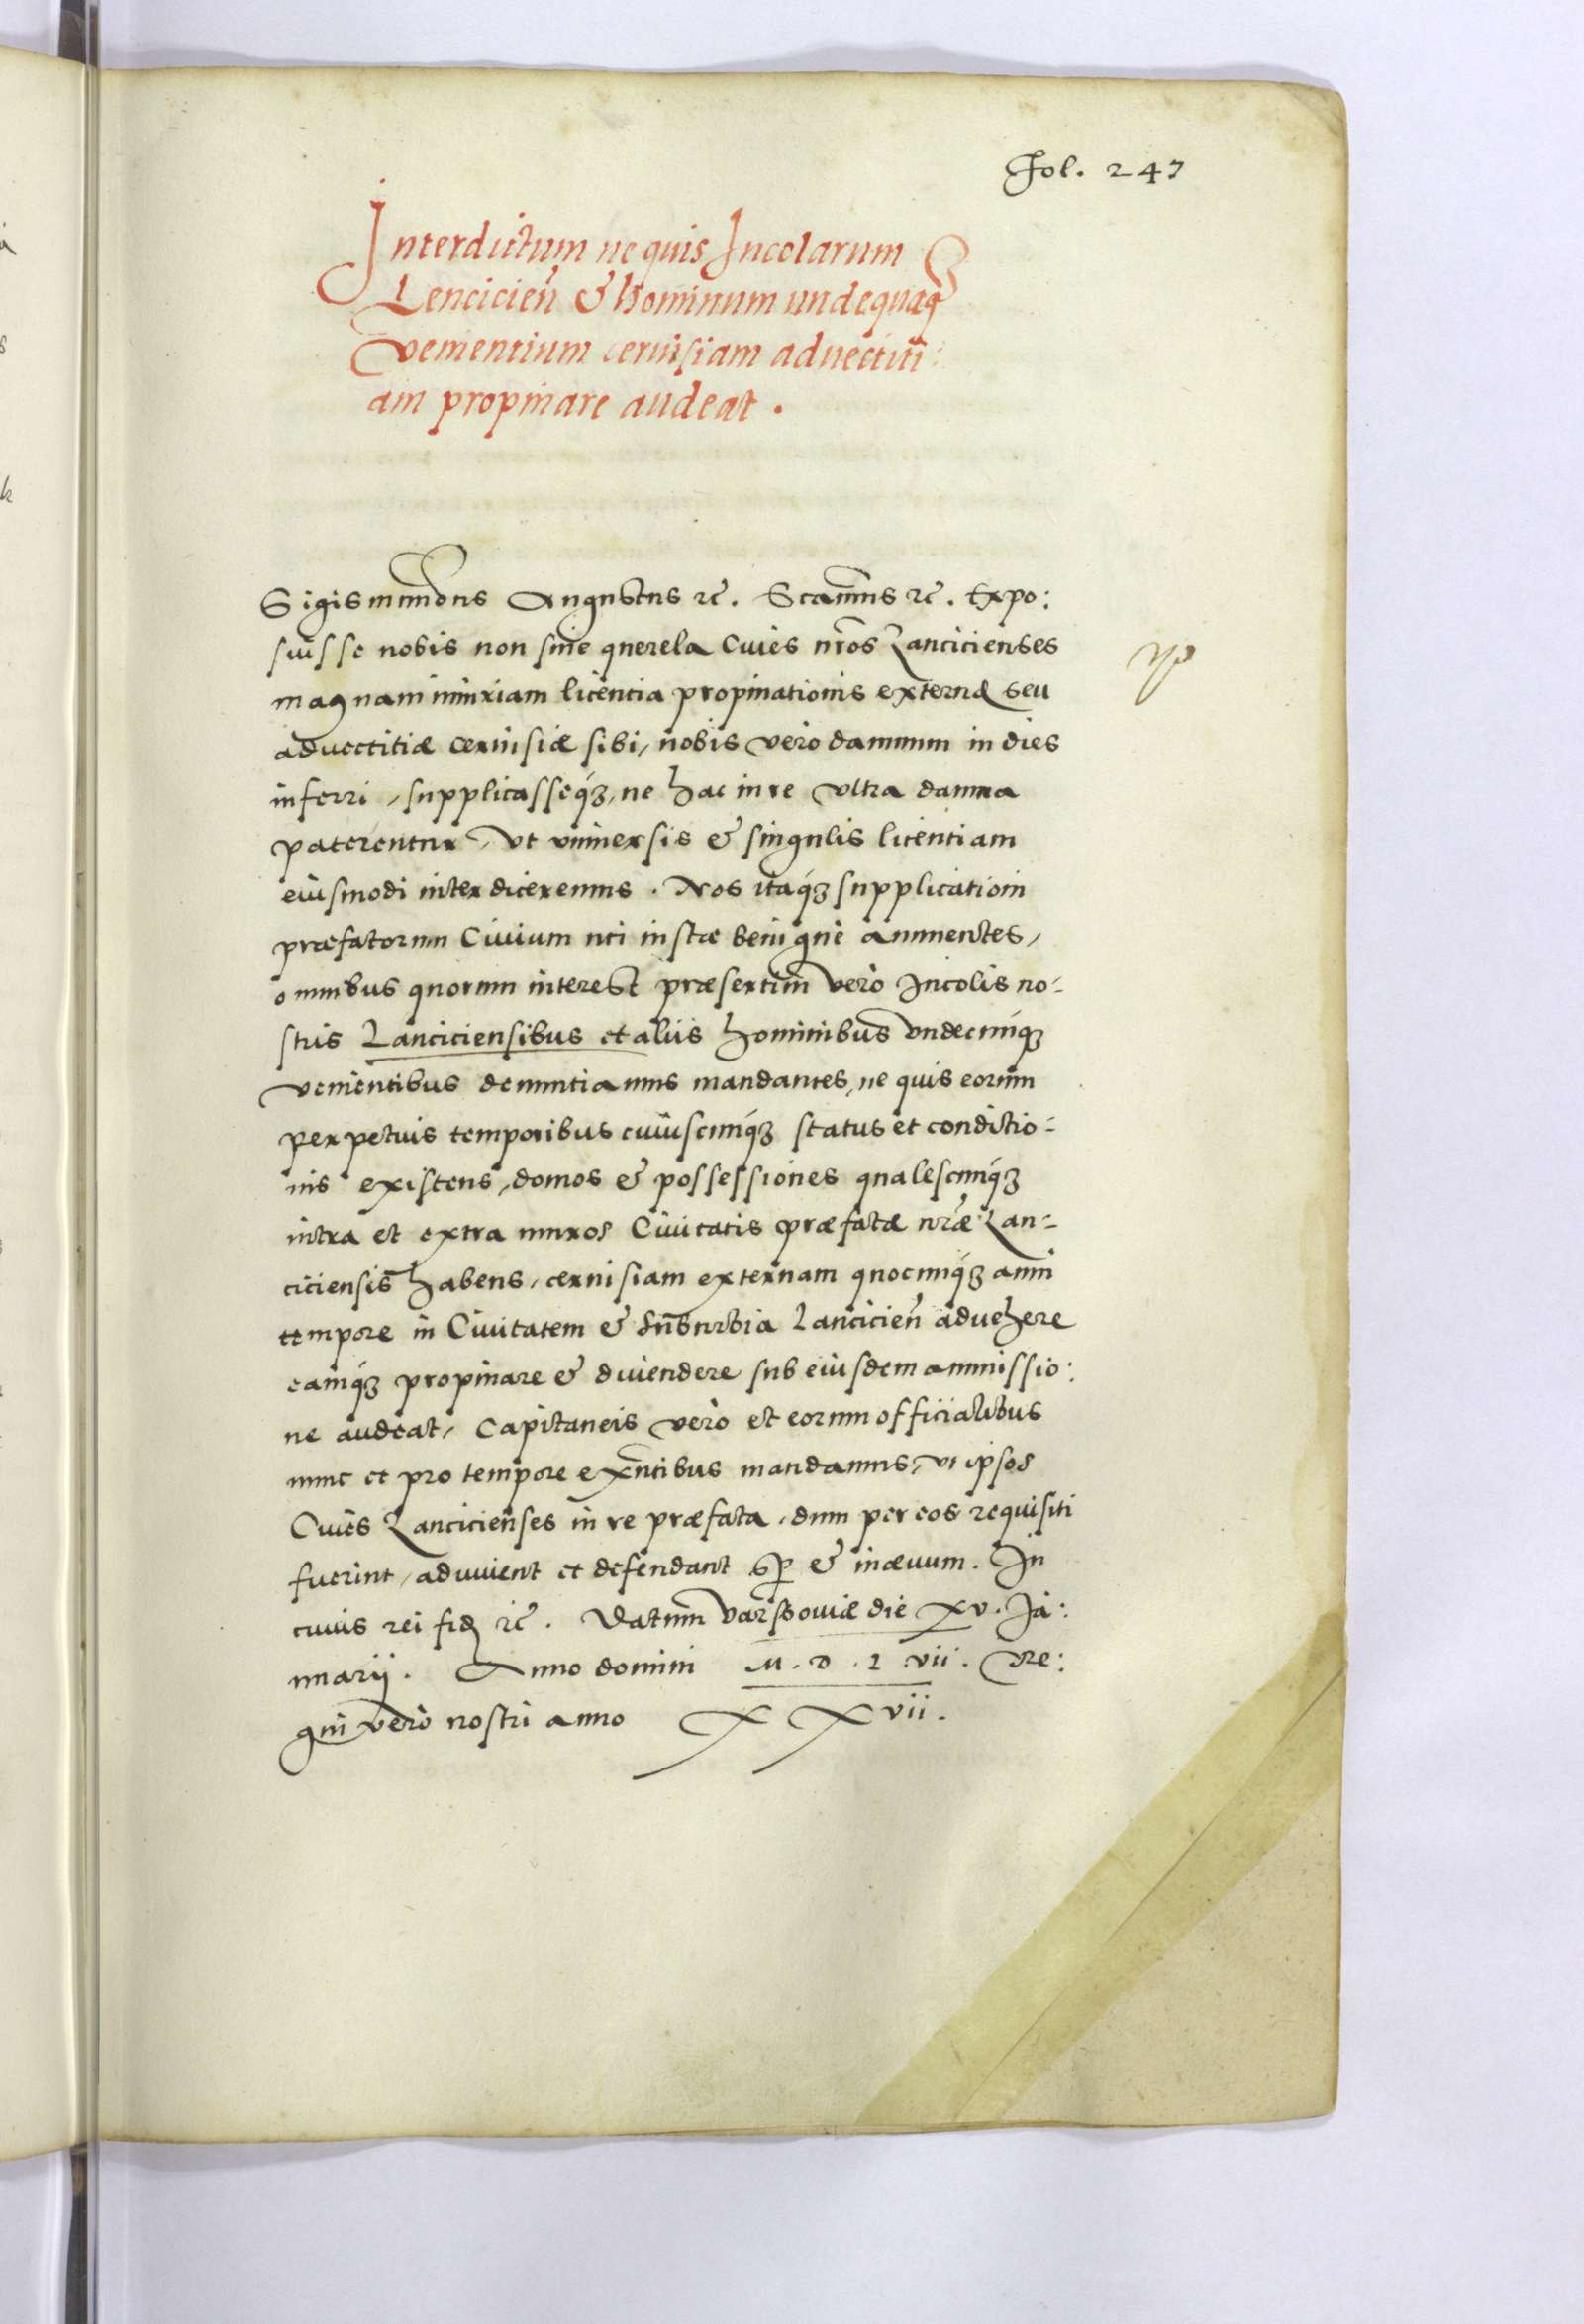 Fol. 247
Interdictum ne quis Incolarum
Lencicien̄ & Hominum undequaq̃
venientium ceruisiam aduectiti:
am propinare audeat.
Sigismundus Augustus &c̃. Scimus &c̃. Expo:
suisse nobis non sine querela Ciues nr̃os Lancicienses
magnam iniuriam licentia propinationis externę seu
aduectitiæ ceruisiæ sibi, nobis vero damnum in dies
inferri, supplicasseq́ʒ, ne hac in re vltra damna
paterentur, vt vniuersis & singulis licentiam
eiusmodi interdiceremus. Nos itaq́ʒ supplicationi
præfatorum Ciuium uti iustæ benigne annuentes,
omnibus quorum interest præsertim vero Incolis no-
stris Lanciciensibus et aliis hominibus vndecunq́ʒ
venientibus denuntiamus mandantes, ne quis eorum
perpetuis temporibus cuiuscunq́ʒ status et conditio-
nis existens, domos & possessiones qualescunq́ʒ
intra et extra muros Ciuitatis præfatæ nr̃æ Lan-
ciciensis habens, ceruisiam externam quocunq́ʒ anni
tempore in Ciuitatem & suburbia Lancicien̄ aduehere
eamq́ʒ propinare & diuendere sub eiusdem amissio:
ne audeat, Capitaneis vero et eorum officialibus
nunc et pro tempore exn̄tibus mandamus, vt ipsos
Ciues Lancicienses in re præfata, dum per eos requisiti
fuerint, adiuuent et defendant sp̱ & in æuum. In
cuius rei fidę &c̃. Datum Varssouiæ die xv. Ja:
nuarij. Anno domini M.D.L.vii. Re:
gni vero nostri anno XXvii.